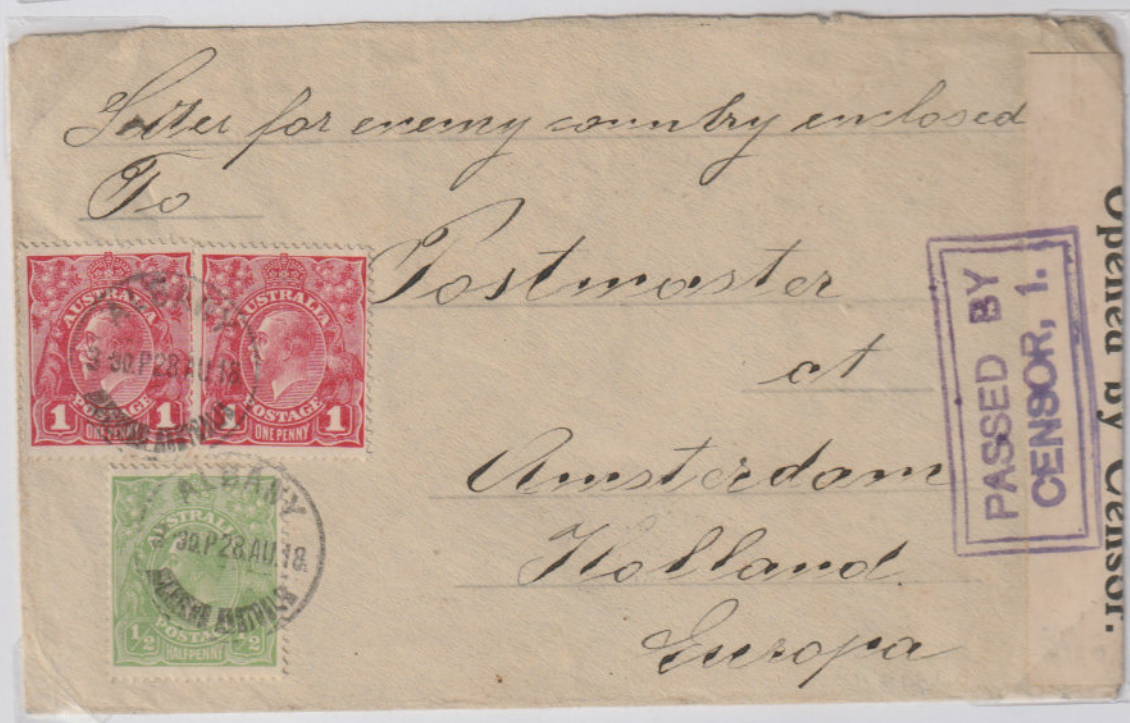 Letter for enemy country enclosed
To
Postmaster
at
Amsterdam
Holland.
Europa
AUSTRALIA
1 POSTAGE 1
ONE PENNY
AUSTRALIA
1 POSTAGE 1
ONE PENNY
ALBANY
3-30.P 28.AU.18
WESTERN AUSTRALIA
AUSTRALIA
½ POSTAGE ½
HALFPENNY
ALBANY
30.P 28.AU.18
WESTERN AUSTRALIA
PASSED BY
CENSOR, 1.
Opened by Censor.